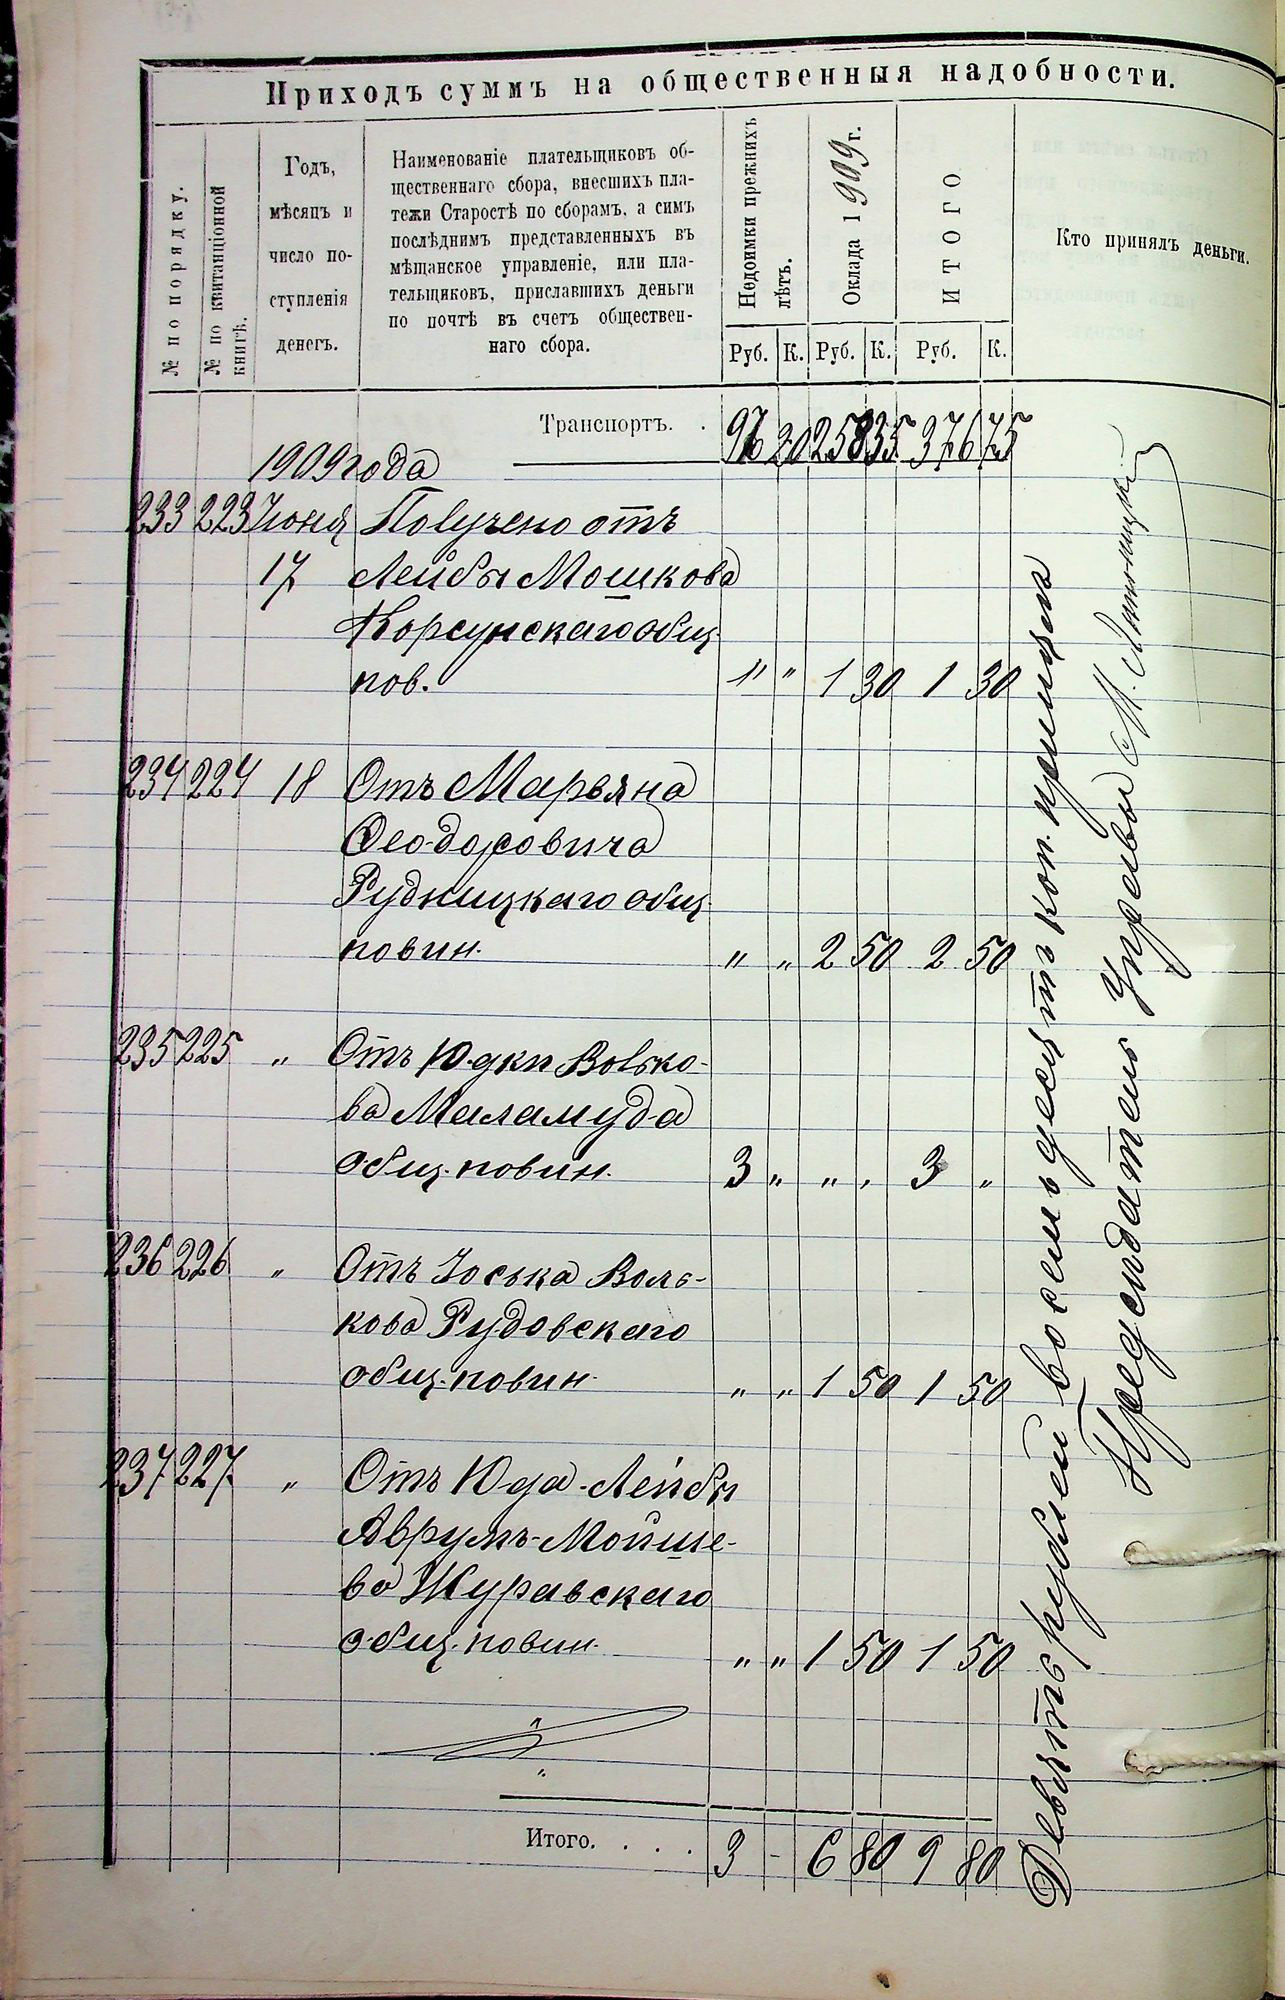 Приходъ суммъ на общественныя надобности.
№ по порядку.
№ по квитанціонной
книгѣ.
Годъ,
мѣсяцъ и
число по-
ступленія
денегъ.
Наименованіе плательщиковъ об-
щественнаго сбора, внесшихъ пла-
тежи Старостѣ по сборамъ, а симъ
послѣднимъ представленныхъ въ
мѣщанское управленіе, или пла-
тельщиковъ, приславшихъ деньги
по почтѣ въ счетъ обществен-
наго сбора.
Недоимки прежнихъ
лѣтъ.
Оклада 1909 г.
ИТОГО
Кто принялъ деньги.
Руб. К. Руб. К. Руб. К.
Транспортъ. . 20 258 35 376 75
1909 года
233 223 Іюня Получено отъ
17 Лейбы Мошкова
Корсунскаго общ.
пов. " " 1 30 1 30
234 224 18 Отъ Марьяна
Феодоровича
Рудницкаго общ.
повин. " " 2 50 2 50
235 225 " Отъ Юдки Волько-
ва Маламуда
общ. повин. 3 " " " 3 "
236 226 " Отъ Іоська Воль-
кова Рудовскаго
общ. повин. " " 1 50 1 50
237 227 " Отъ Юда-Лейбы
Аврумъ-Мойше-
ва Журавскаго
общ. повин. " " 1 50 1 50
Итого. . . . 3 - 6 80 9 80
Девять рублей восемьдесятъ коп. принялъ
Предсѣдатель Управы М.